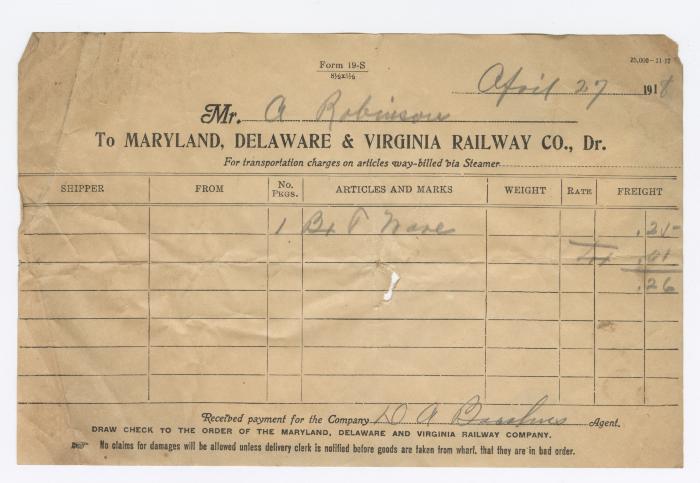 Form 19-S
8½x5½
25,000-11-17
April 27 1918
Mr. A Robinson
To MARYLAND, DELAWARE & VIRGINIA RAILWAY CO., Dr.
For transportation charges on articles way-billed via Steamer
SHIPPER FROM No. Pkgs. ARTICLES AND MARKS WEIGHT RATE FREIGHT
1 Bx T Ware .25
.01
.26
Received payment for the Company D A Agent.
DRAW CHECK TO THE ORDER OF THE MARYLAND, DELAWARE AND VIRGINIA RAILWAY COMPANY.
No claims for damages will be allowed unless delivery clerk is notified before goods are taken from wharf, that they are in bad order.